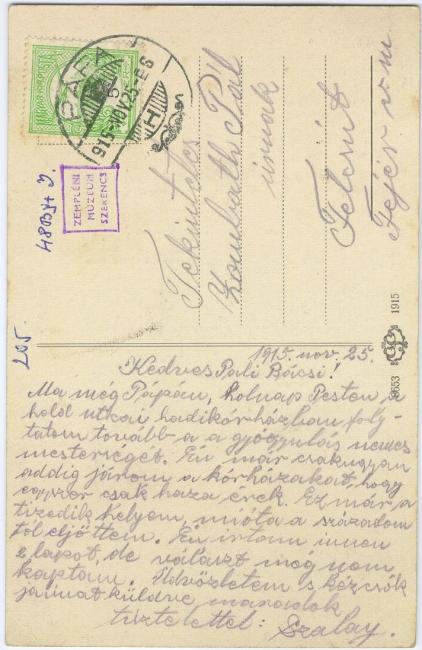 PÁPA
915 NOV 25 E6
H
MAGYAR KIR. POSTA
ZEMPLÉNI
MÚZEUM
SZERENCS
205.
Tekintetes
Zombath Pál
úrnak
Felcsút
Fejér v m
9653
1915
1915. nov. 25.
Kedves Pali Bácsi!
Ma még Pápán, holnap Pesten a
hold utcai hadikórházban foly-
tatom tovább a a gyógyulás nemes
mesterségét. Én már csakugyan
addig járom a kórházakat, hogy
egyszer csak haza érek. Ez már a
tizedik helyem, mióta a századom
tól eljöttem. Én írtam innen
2 lapot, de választ még nem
kaptam. Üdvözletem s kézcsók
jaimat küldve maradok
tisztelettel: Szalay.